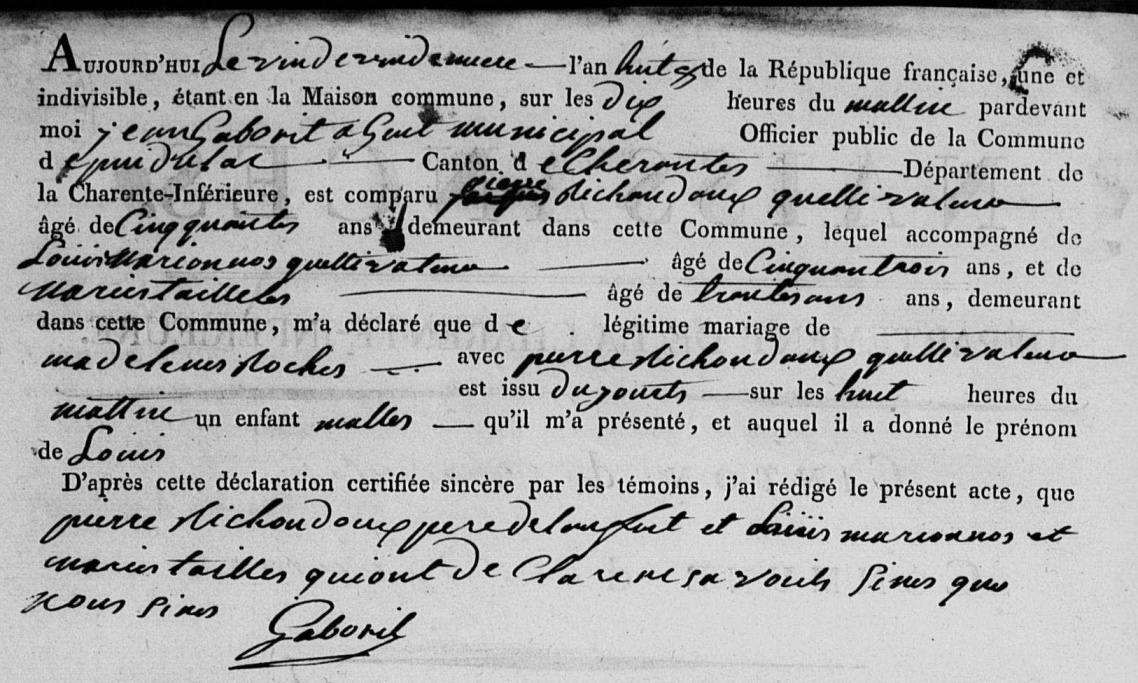 AUJOURD'HUI Le vindevindemiere l'an huit de la République française, une et
indivisible, étant en la Maison commune, sur les dix heures du mattin pardevant
moi jean Gaborit agent municipal Officier public de la Commune
d epuidulac Canton d eCherontes Département de
la Charente-Inférieure, est comparu pierre Michondoux quelletivateur
âgé de Cinqquantes ans demeurant dans cette Commune, lequel accompagné de
Louis Marionnos quelletivateur âgé de Cinquantrois ans, et de
Maries tailles âgé de trantes ans ans, demeurant
dans cette Commune, m'a déclaré que d e légitime mariage de
madelenes Roches avec pierre Michondoux quelletivateur
est issu du jourts sur les huit heures du
mattin un enfant malles qu'il m'a présenté, et auquel il a donné le prénom
de Louis
D'après cette déclaration certifiée sincère par les témoins, j'ai rédigé le présent acte, que
pierre Michondoux pere de lanfant et Louis marionnos et
maries tailles qui ont de Clare ne savoir sines que
nous sines
Gaborit